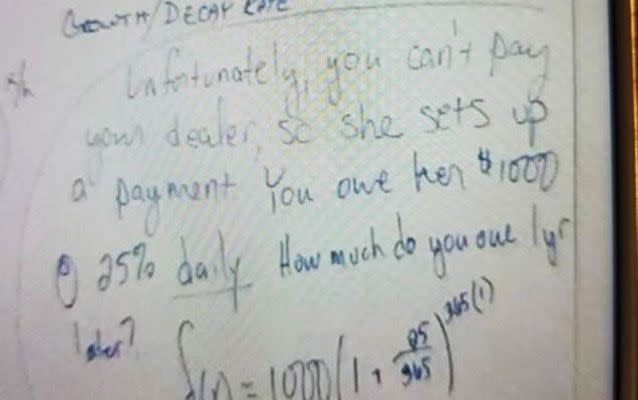 GROWTH/DECAY RATE
Unfortunately, you can't pay
your dealer, so she sets up
a payment. You owe her $1000
@ 25% daily How much do you owe 1yr
later?
= 1000(1+.25/365)^365(1)